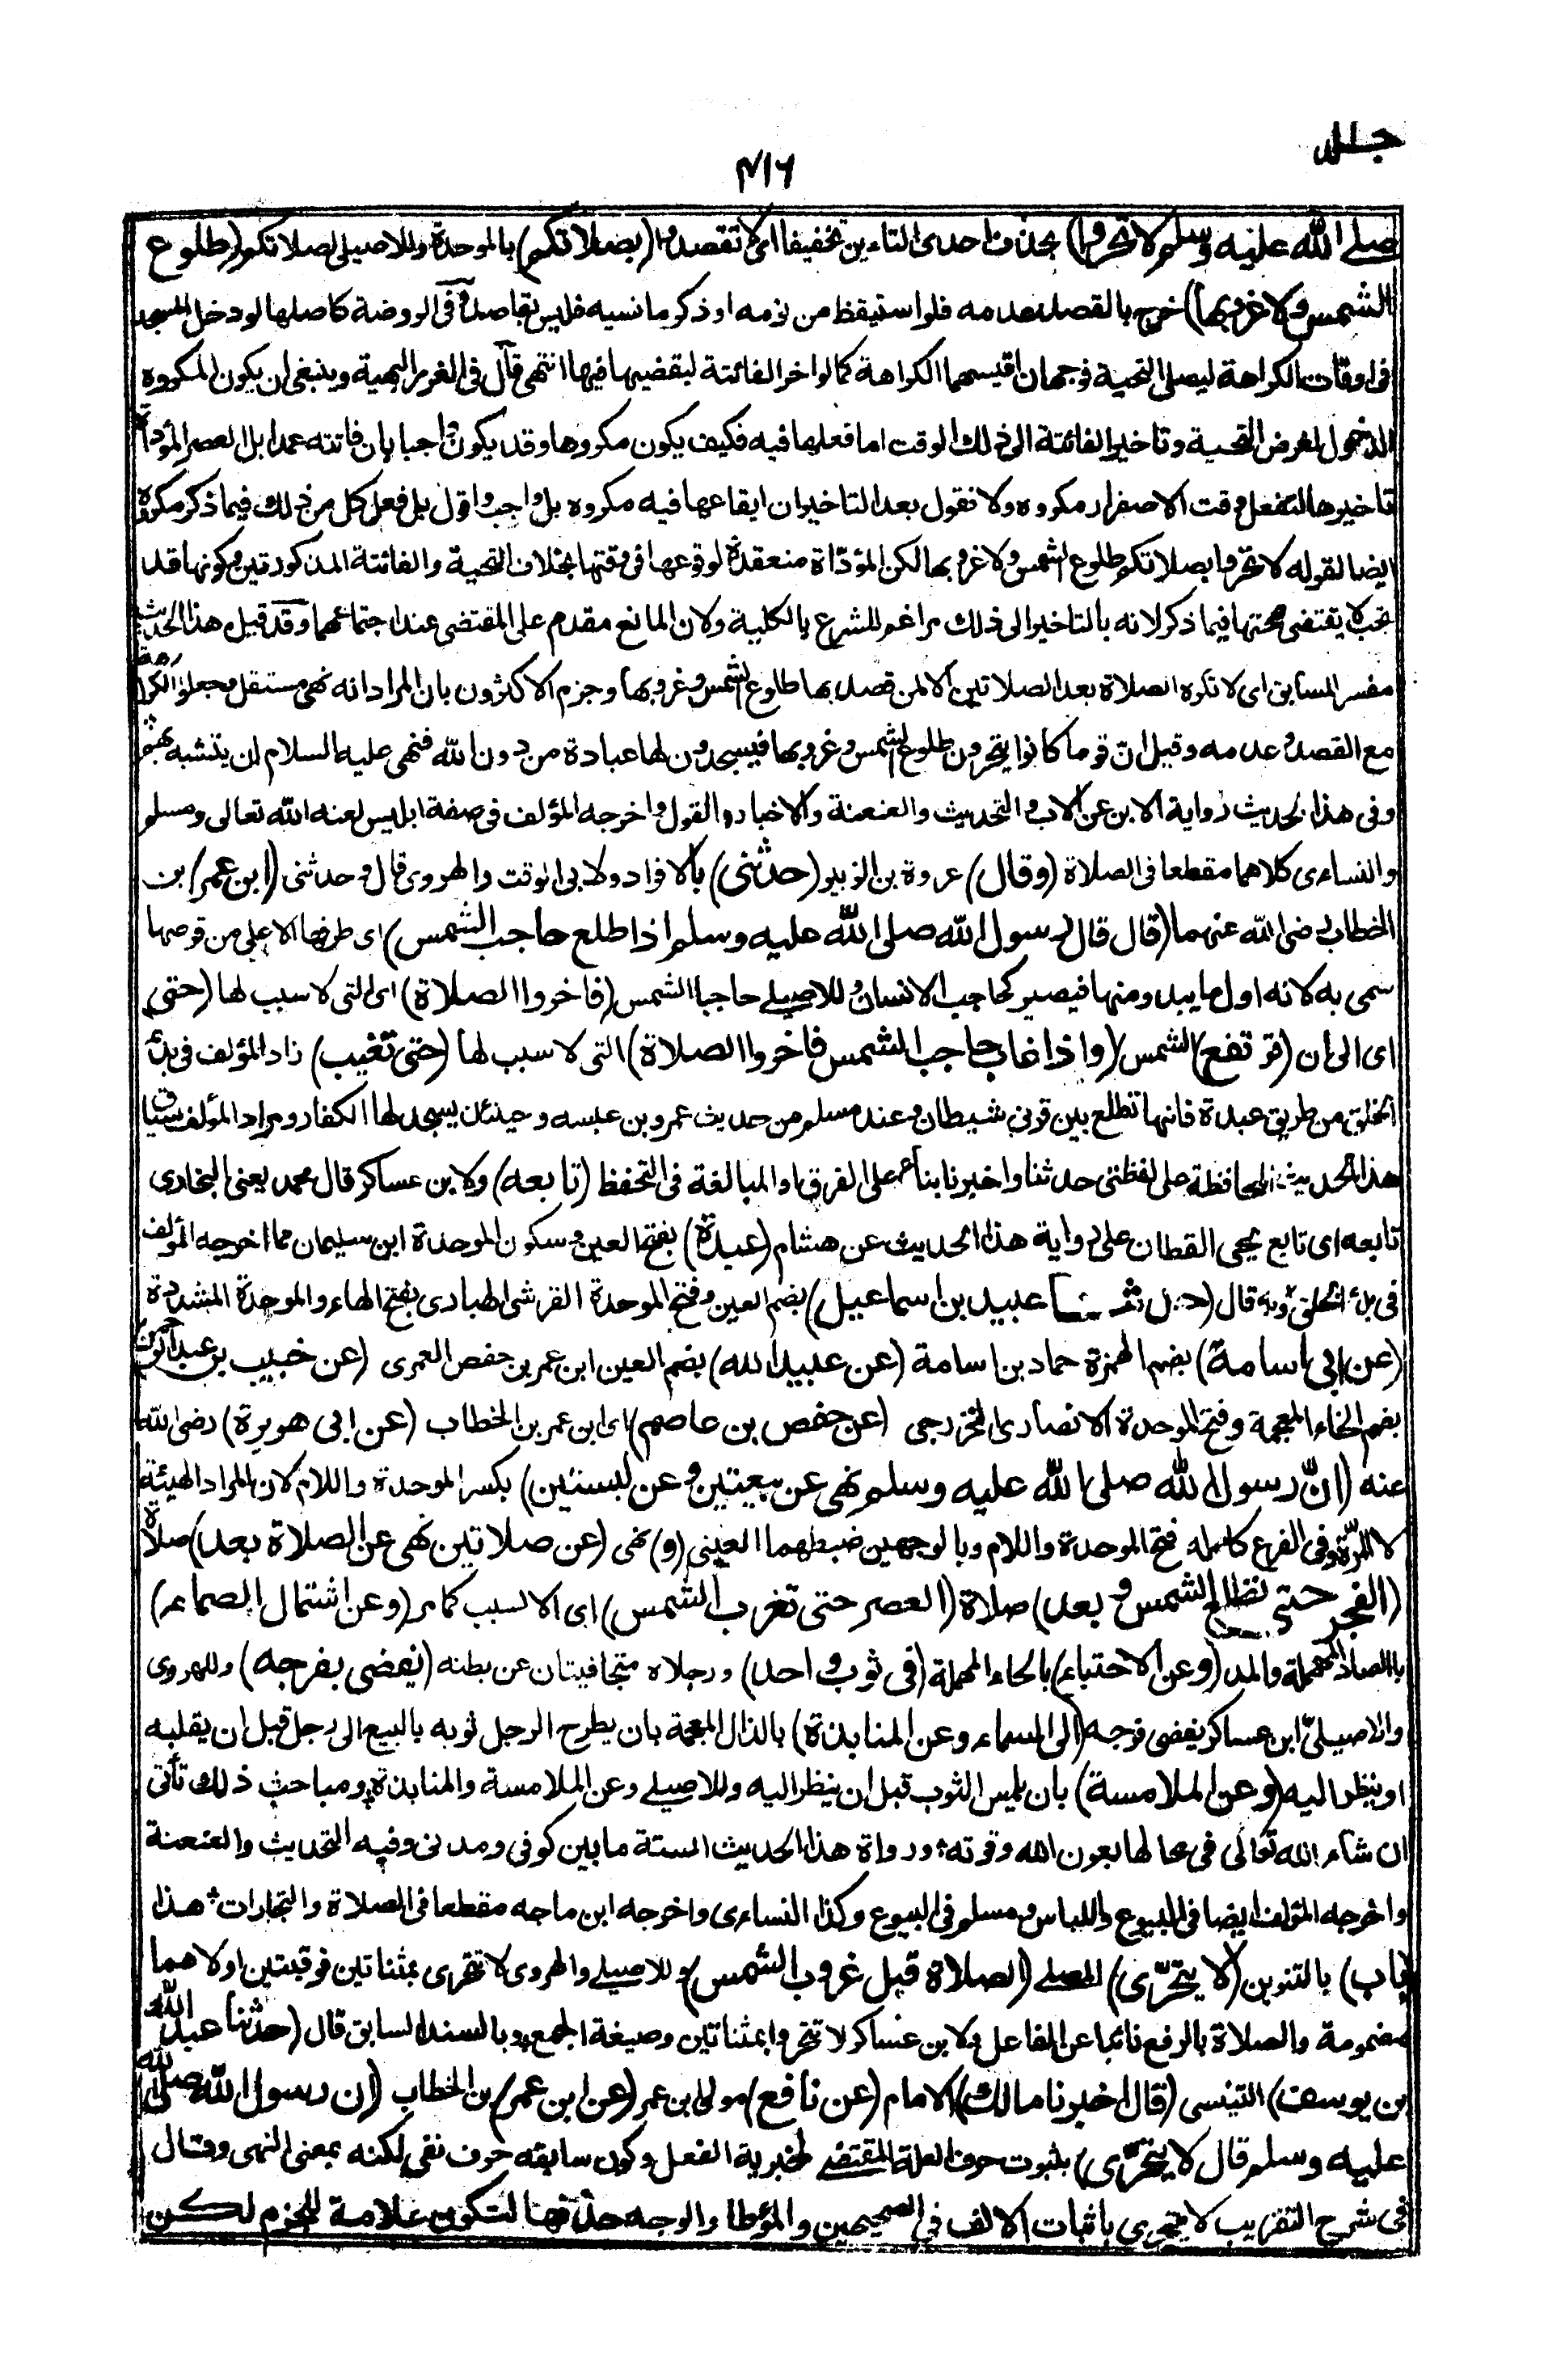 جلد
٤١٦
صلى الله عليه وسلم لا تحروا) بحذف احدى التاءين تخفيفا اى لا تقصدوا (بصلاتكم) بالموحدة وللاصيلى لصلاتكم (طلوع
الشمس ولا غروبها) خرج بالقصد عدمه فلو استيقظ من نومه او ذكر ما نسيه فليس بقاصد وفى الروضة كاصلها لو دخل المسجد
فى اوقات الكراهة ليصلى التحية فوجهان اقيسهما الكراهة كما لو اخر الفائتة ليقضيها فيها انتهى قال فى الغرر البهية وينبغى ان يكون المكروه
الدخول لغرض التحية وتاخير الفائتة الى ذلك الوقت اما فعلها فيه فكيف يكون مكروها وقد يكون واجبا بان فاتته عمدا بل العصر المؤداة
تاخيرها لتفعل وقت الاصفرار مكروه ولا نقول بعد التاخير ان ايقاعها فيه مكروه بل واجب واقول بل فعل كل من ذلك فيما ذكر مكروه
ايضا لقوله لا تحروا بصلاتكم طلوع الشمس ولا غروبها لكن المؤداة منعقدة لوقوعها فى وقتها بخلاف التحية والفائتة المذكورتين وكونها قد
تجب لا يقتضى صحتها فيما ذكر لانه بالتاخير الى ذلك مراغم للشرع بالكلية ولان المانع مقدم على المقتضى عند اجتماعهما وقد قيل هذا الحديث
مفسر للسابق اى لا تكره الصلاة بعد الصلاتين الا لمن قصد بها طلوع الشمس وغروبها وجزم الاكثرون بان المراد انه نهى مستقل وجعلوا الكراهة
مع القصد وعدمه وقيل ان قوما كانوا يتحرون طلوع الشمس وغروبها فيسجدون لها عبادة من دون الله فنهى عليه السلام ان يتشبه بهم
وفى هذا الحديث رواية الابن عن الاب والتحديث والعنعنة والاخبار والقول واخرجه المؤلف فى صفة ابليس لعنه الله تعالى ومسلم
والنساءى كلاهما مقطعا فى الصلاة (وقال) عروة بن الزبير (حدثنى) بالافراد ولابى الوقت والهروى قال وحدثنى (ابن عمر) بن
الخطاب رضى الله عنهما (قال قال رسول الله صلى الله عليه وسلم اذا طلع حاجب الشمس) اى طرفها الاعلى من قرصها
سمى به لانه اول ما يبدو منها فيصير كحاجب الانسان وللاصيلى حاجبا الشمس (فاخروا الصلاة) اى التى لا سبب لها (حتى
اى الى ان (ترتفع) الشمس (واذا غاب حاجب الشمس فاخروا الصلاة) التى لا سبب لها (حتى تغيب) زاد المؤلف فى بدء
الخلق من طريق عبدة فانها تطلع بين قرنى شيطان وعند مسلم من حديث عمرو بن عبسه وحينئذ يسجد لها الكفار ومراد المؤلف بسياق
هذا الحديث المحافظة على لفظتى حدثنا واخبرنا بناء على الفرق او المبالغة فى التحفظ (تابعه) ولابن عساكر قال محمد يعنى البخارى
تابعه اى تابع يحيى القطان على رواية هذا الحديث عن هشام (عبدة) بفتح العين وسكون الموحدة ابن سليمان مما اخرجه المؤلف
فى بدء الخلق وبه قال (حدثنا عبيد بن اسماعيل) بضم العين وفتح الموحدة القرشى الهبارى بفتح الهاء والموحدة المشددة
(عن ابى اسامة) بضم الهمزة حماد بن اسامة (عن عبيد الله) بضم العين ابن عمر بن حفص العمرى (عن خبيب بن عبد الرحمن
بضم الخاء المعجمة وفتح الموحدة الانصارى الخزرجى (عن حفص بن عاصم) اى ابن عمر بن الخطاب (عن ابى هريرة) رضى الله
عنه (ان رسول الله صلى الله عليه وسلم نهى عن بيعتين وعن لبستين) بكسر الموحدة واللام لان المراد الهيئة
لا المرة وفى الفرع كاصله فتح الموحدة واللام وبالوجهين ضبطهما العينى (و) نهى (عن صلاتين نهى عن الصلاة بعد) صلاة
(الفجر حتى تطلع الشمس و بعد) صلاة (العصر حتى تغرب الشمس) اى الا لسبب كما مر (وعن اشتمال الصماء)
بالصاد المهملة والمد (وعن الاحتباء) بالحاء المهملة (فى ثوب واحد) ورجلاه متجافيتان عن بطنه (يفضى بفرجه) وللهروى
والاصيلى ابن عساكر يفضى فرجه (الى السماء وعن المنابذة) بالذال المعجمة بان يطرح الرجل ثوبه بالبيع الى رجل قبل ان يقلبه
او ينظر اليه (وعن الملامسة) بان يلمس الثوب قبل ان ينظر اليه وللاصيلى وعن الملامسة والمنابذة ومباحث ذلك تأتى
ان شاء الله تعالى فى محالها بعون الله وقوته ورواة هذا الحديث الستة ما بين كوفى ومدنى وفيه التحديث والعنعنة
واخرجه المؤلف ايضا فى البيوع واللباس ومسلم فى البيوع وكذا النساءى واخرجه ابن ماجه مقطعا فى الصلاة والتجارات هذا
(باب) بالتنوين (لا يتحرى) المصلى (الصلاة قبل غروب الشمس) وللاصيلى والهروى لا تتحرى بمثناتين فوقيتين اولاهما
مضمومة والصلاة بالرفع نائبا عن الفاعل ولابن عساكر لا تتحروا بمثناتين وصيغة الجمع وبالسند السابق قال (حدثنا عبد الله
بن يوسف) التنيسى (قال اخبرنا مالك) الامام (عن نافع) مولى ابن عمر (عن ابن عمر) بن الخطاب (ان رسول الله صلى الله
عليه وسلم قال لا يتحرى) بثبوت حرف العلة المقتضى لخبرية الفعل وكون سابقه حرف نفى لكنه بمعنى النهى وقال
فى شرح التقريب لا يتحرى باثبات الالف فى الصحيحين والمؤطا والوجه حذفها لتكون علامة للجزم لكن